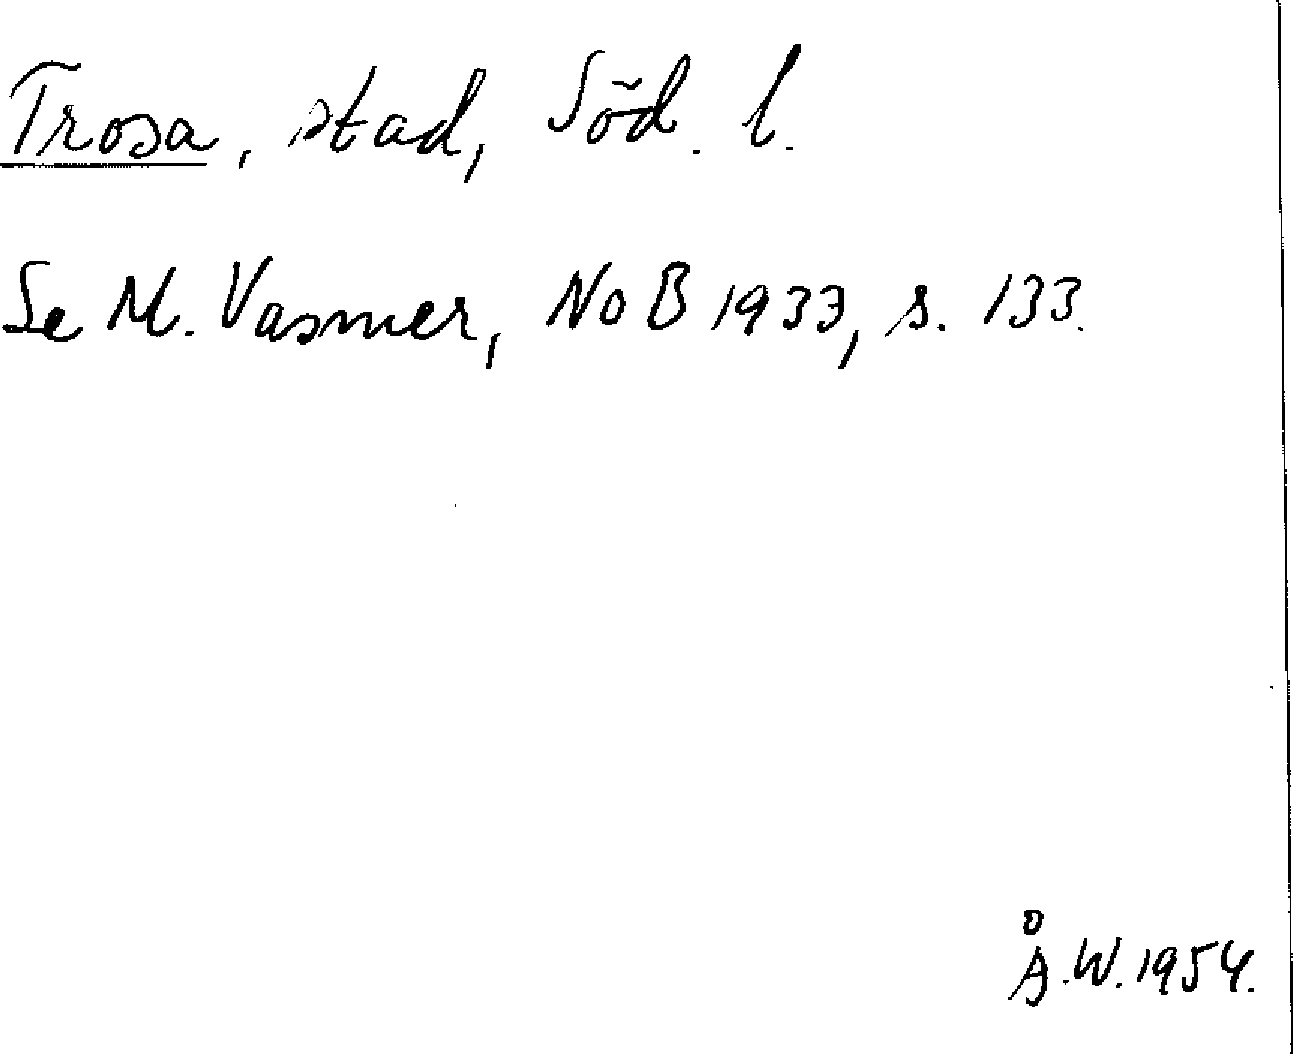 Trosa, stad, Söd. l.
Se M. Vasmer, NoB 1933, s. 133.
Å.W. 1954.